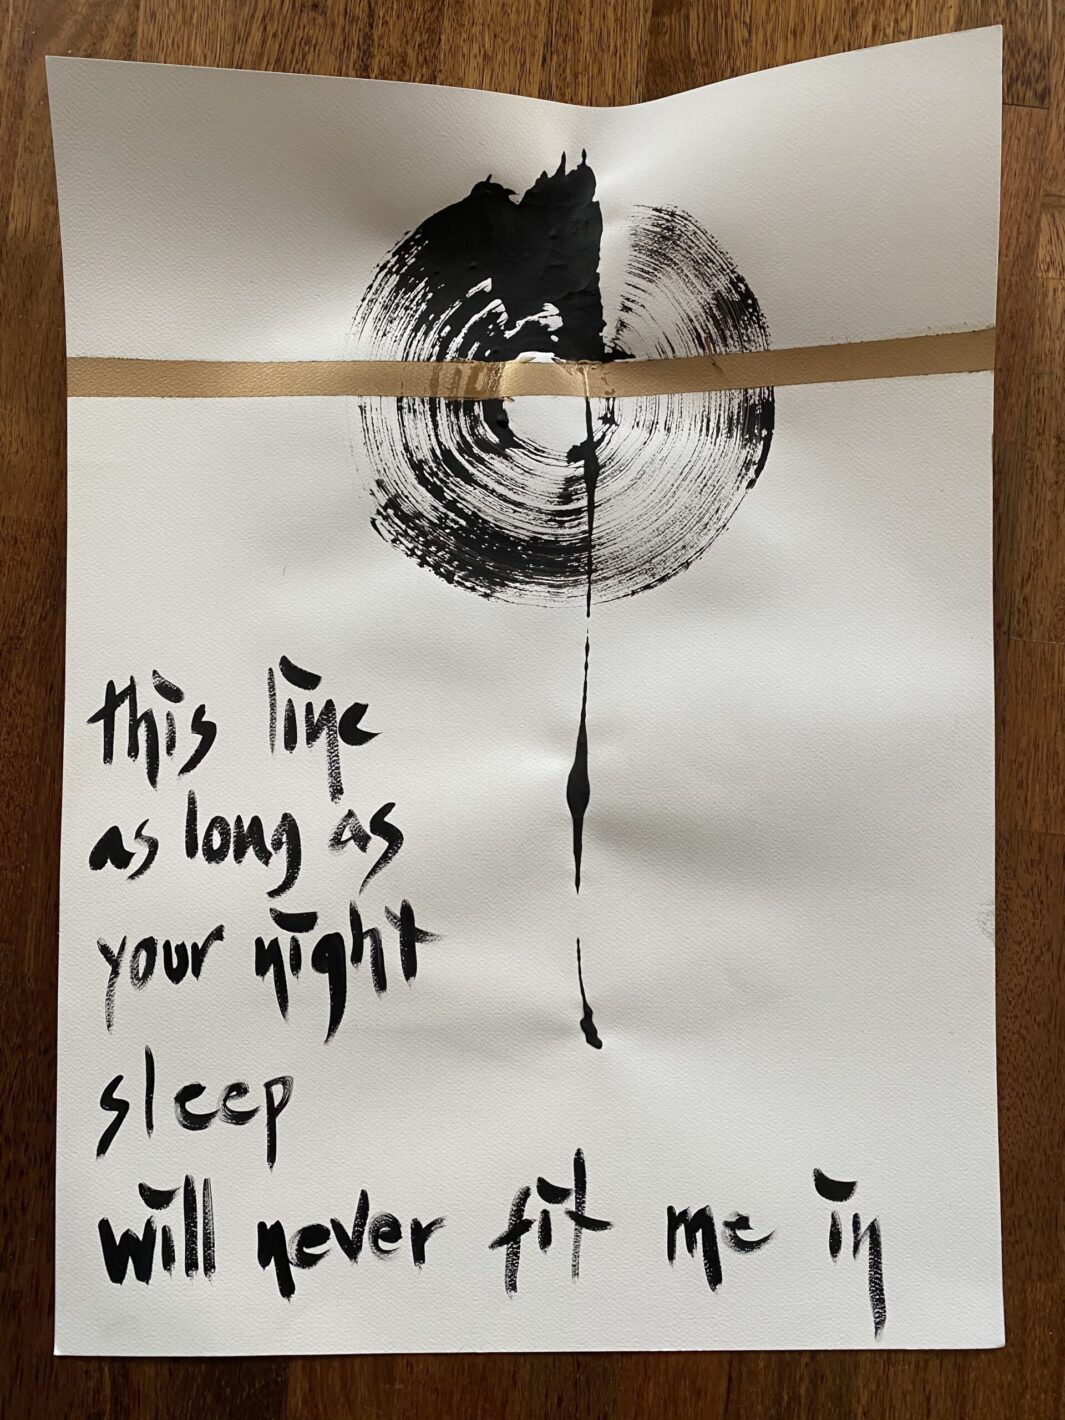 this line
as long as
your night
sleep
will never fit me in